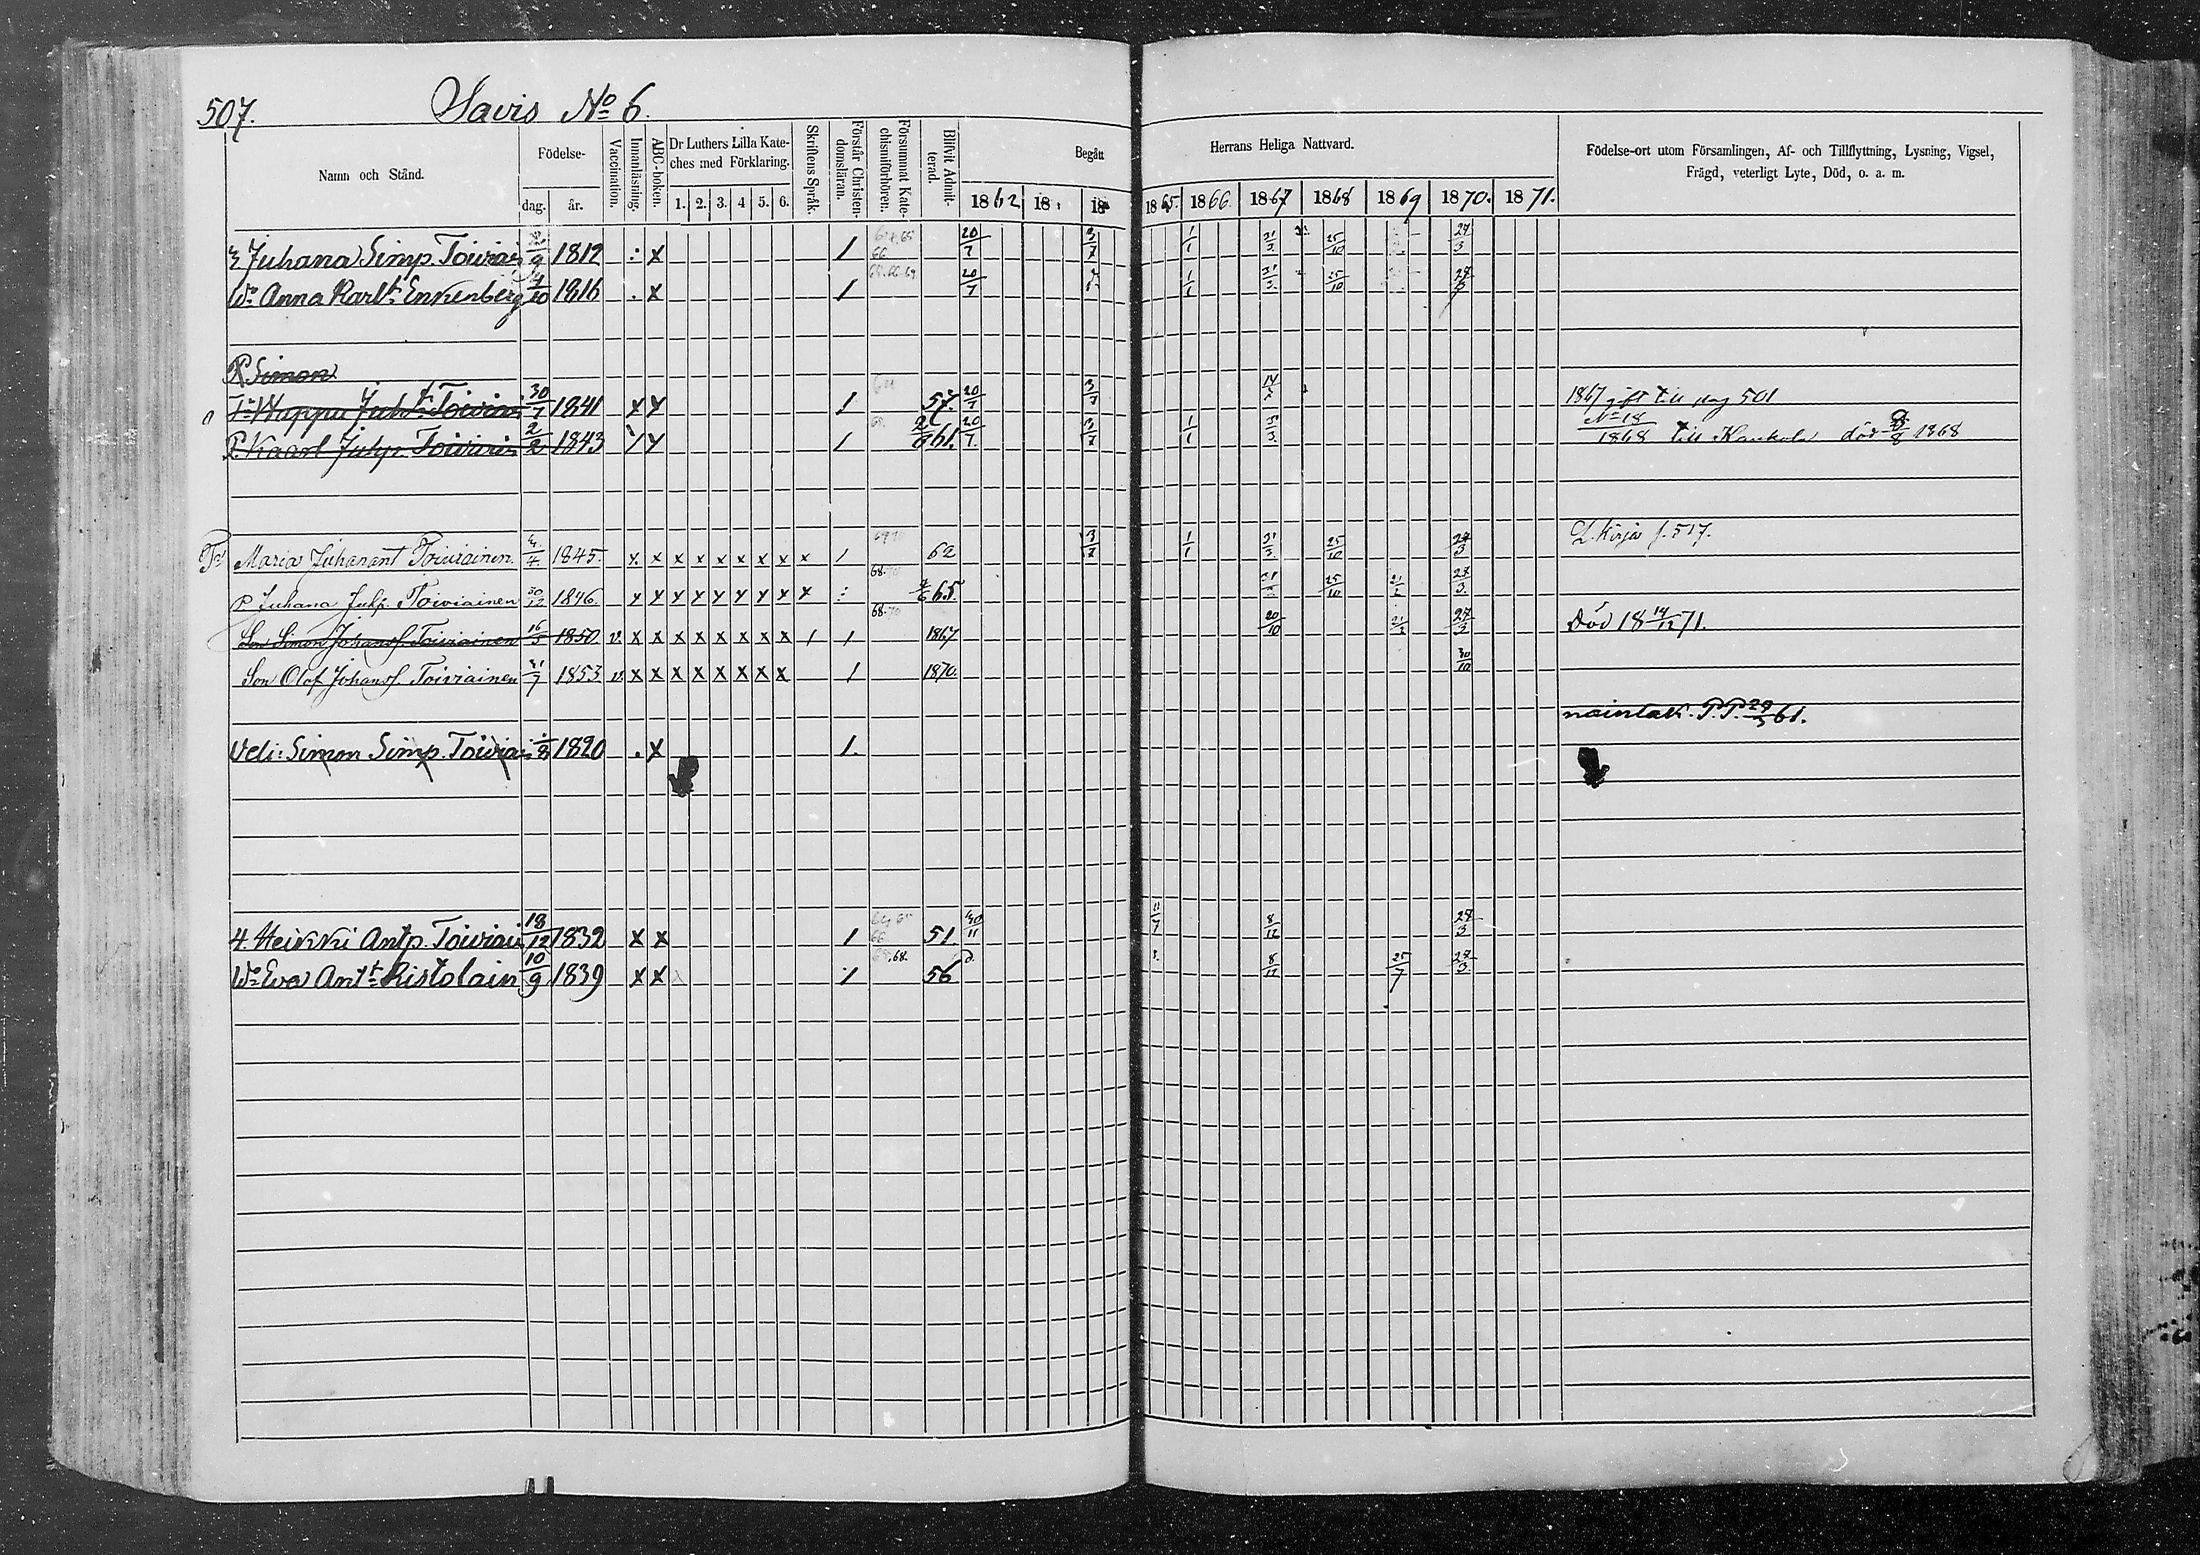 507. Savis No 6.
Namn och Stånd. Födelse- dag. år. Vaccination. Innanläsning. ABC-boken. Dr Luthers Lilla Kateches med Förklaring. 1. 2. 3. 4 5. 6. Skriftens Språk. Förstår Christendomsläran. Försummat Katechismiförhören. Blifvit Admitterad. Begått Herrans Heliga Nattvard. 1862 18 18 1865. 1866. 1867 1868 1869 1870. 1871. Födelse-ort utom Församlingen, Af- och Tillflyttning, Lysning, Vigsel, Frägd, veterligt Lyte, Död, o. a. m.
Juhana Simp. Toiviain 9 1812 x 1 66 20/7 3/7 1/1 31/3 25/10 27/3
Wo Anna Karlt Enkenberg 4/10 1816 . x 1 20/7 1/1 31/3 25/10
P. Simon
Tr Wappu Juht Toiviain 30/7 1841 x x 1 57. 20/7 3/7 1867 gift till pag 501
P. Kaarl Juhp. Toiviain 2/2 1843 1 61. 20/7 3/7 1/1 31/3 No 18/1868 till Kaukola död 1868
Maria Juhanant Toiviainen. 1845. x x x x x x x x x 1 62 3/7 1/1 31/3 25/10 27/3 L. Kirja s. 517.
P Juhana Juhp. Toiviainen 30/12 1846. x x x x x x x x x : 68.70 65. 31/3 25/10 21/2 27/3
Son Simon Johansf. Toiviainen 16/5 1850. v. x x x x x x x x 1 1 68.70 1867 20/10 21/2 27/3 Död 18 14/12 71.
Son Olof Johansf. Toiviainen 31/7 1853 v. x x x x x x x x 1 1870. 30/10
naintak. P.P. 61.
Veli: Simon Simp. Toiviai 8 1820 . x 1.
H. Heikki Antp. Toiviain 18/12 1832 x x 1 66 51. 30/11 11/7 8/12 27/3
Wo Eva Antt Ristolain 10/9 1839 x x 1 68. 56 8/12 25/7 27/3